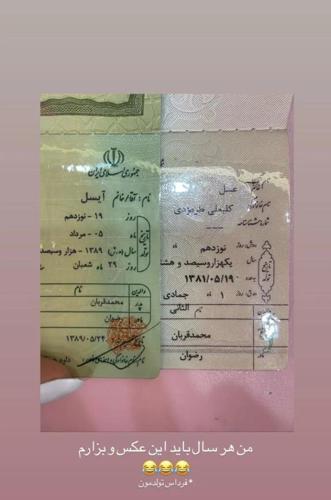 جمهوری اسلامی ایران
نام: آقا/خانم آیسل
روز ۱۹ - نوزدهم
ماه ۰۵ - مرداد
سال (ه.ش) ۱۳۸۹ - هزار و سیصد
۲۹ ماه شعبان
والدین
پدر محمدقربان
مادر رضوان
۱۳۸۹/۰۵/۲۴
نام عسل
نام خانوادگی
نوزدهم ماه
سال یکهزاروسیصد و هشتا
۱۳۸۱/۰۵/۱۹
روز ۱ ماه جمادی الثانی
محمدقربان
رضوان
من هر سال باید این عکس و بزارم
😂😂😂
*فرداس تولدمون